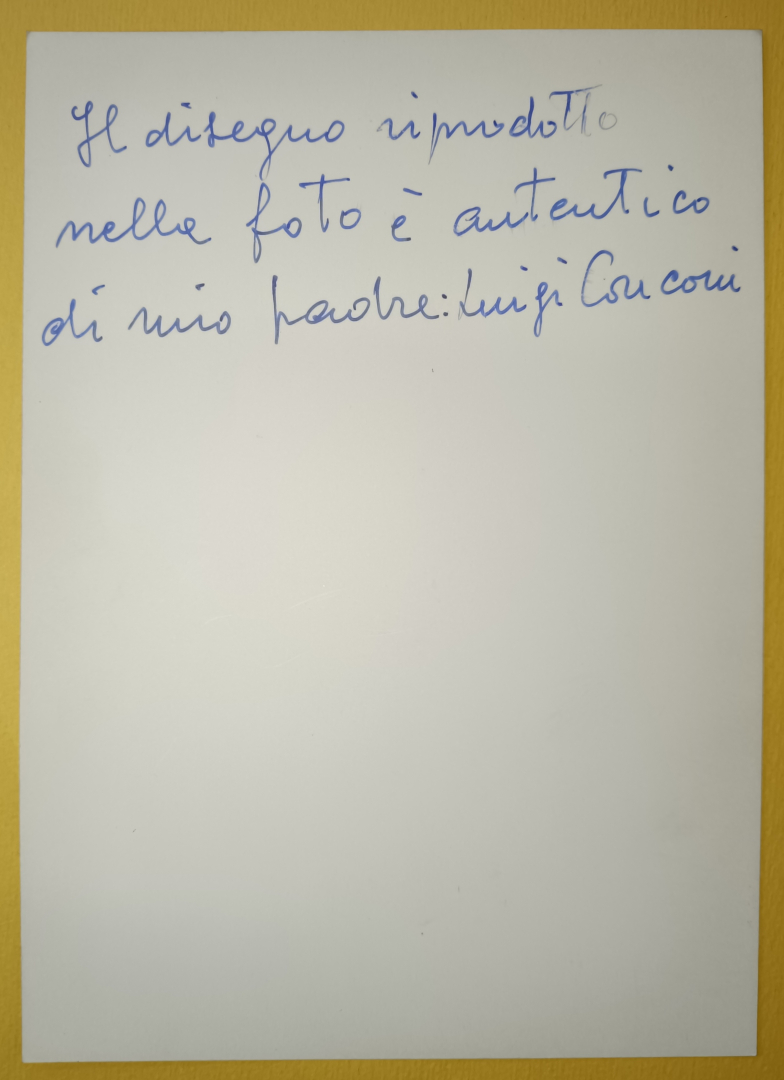 Il disegno riprodotto
nella foto è autentico
di mio padre: Luigi Conconi